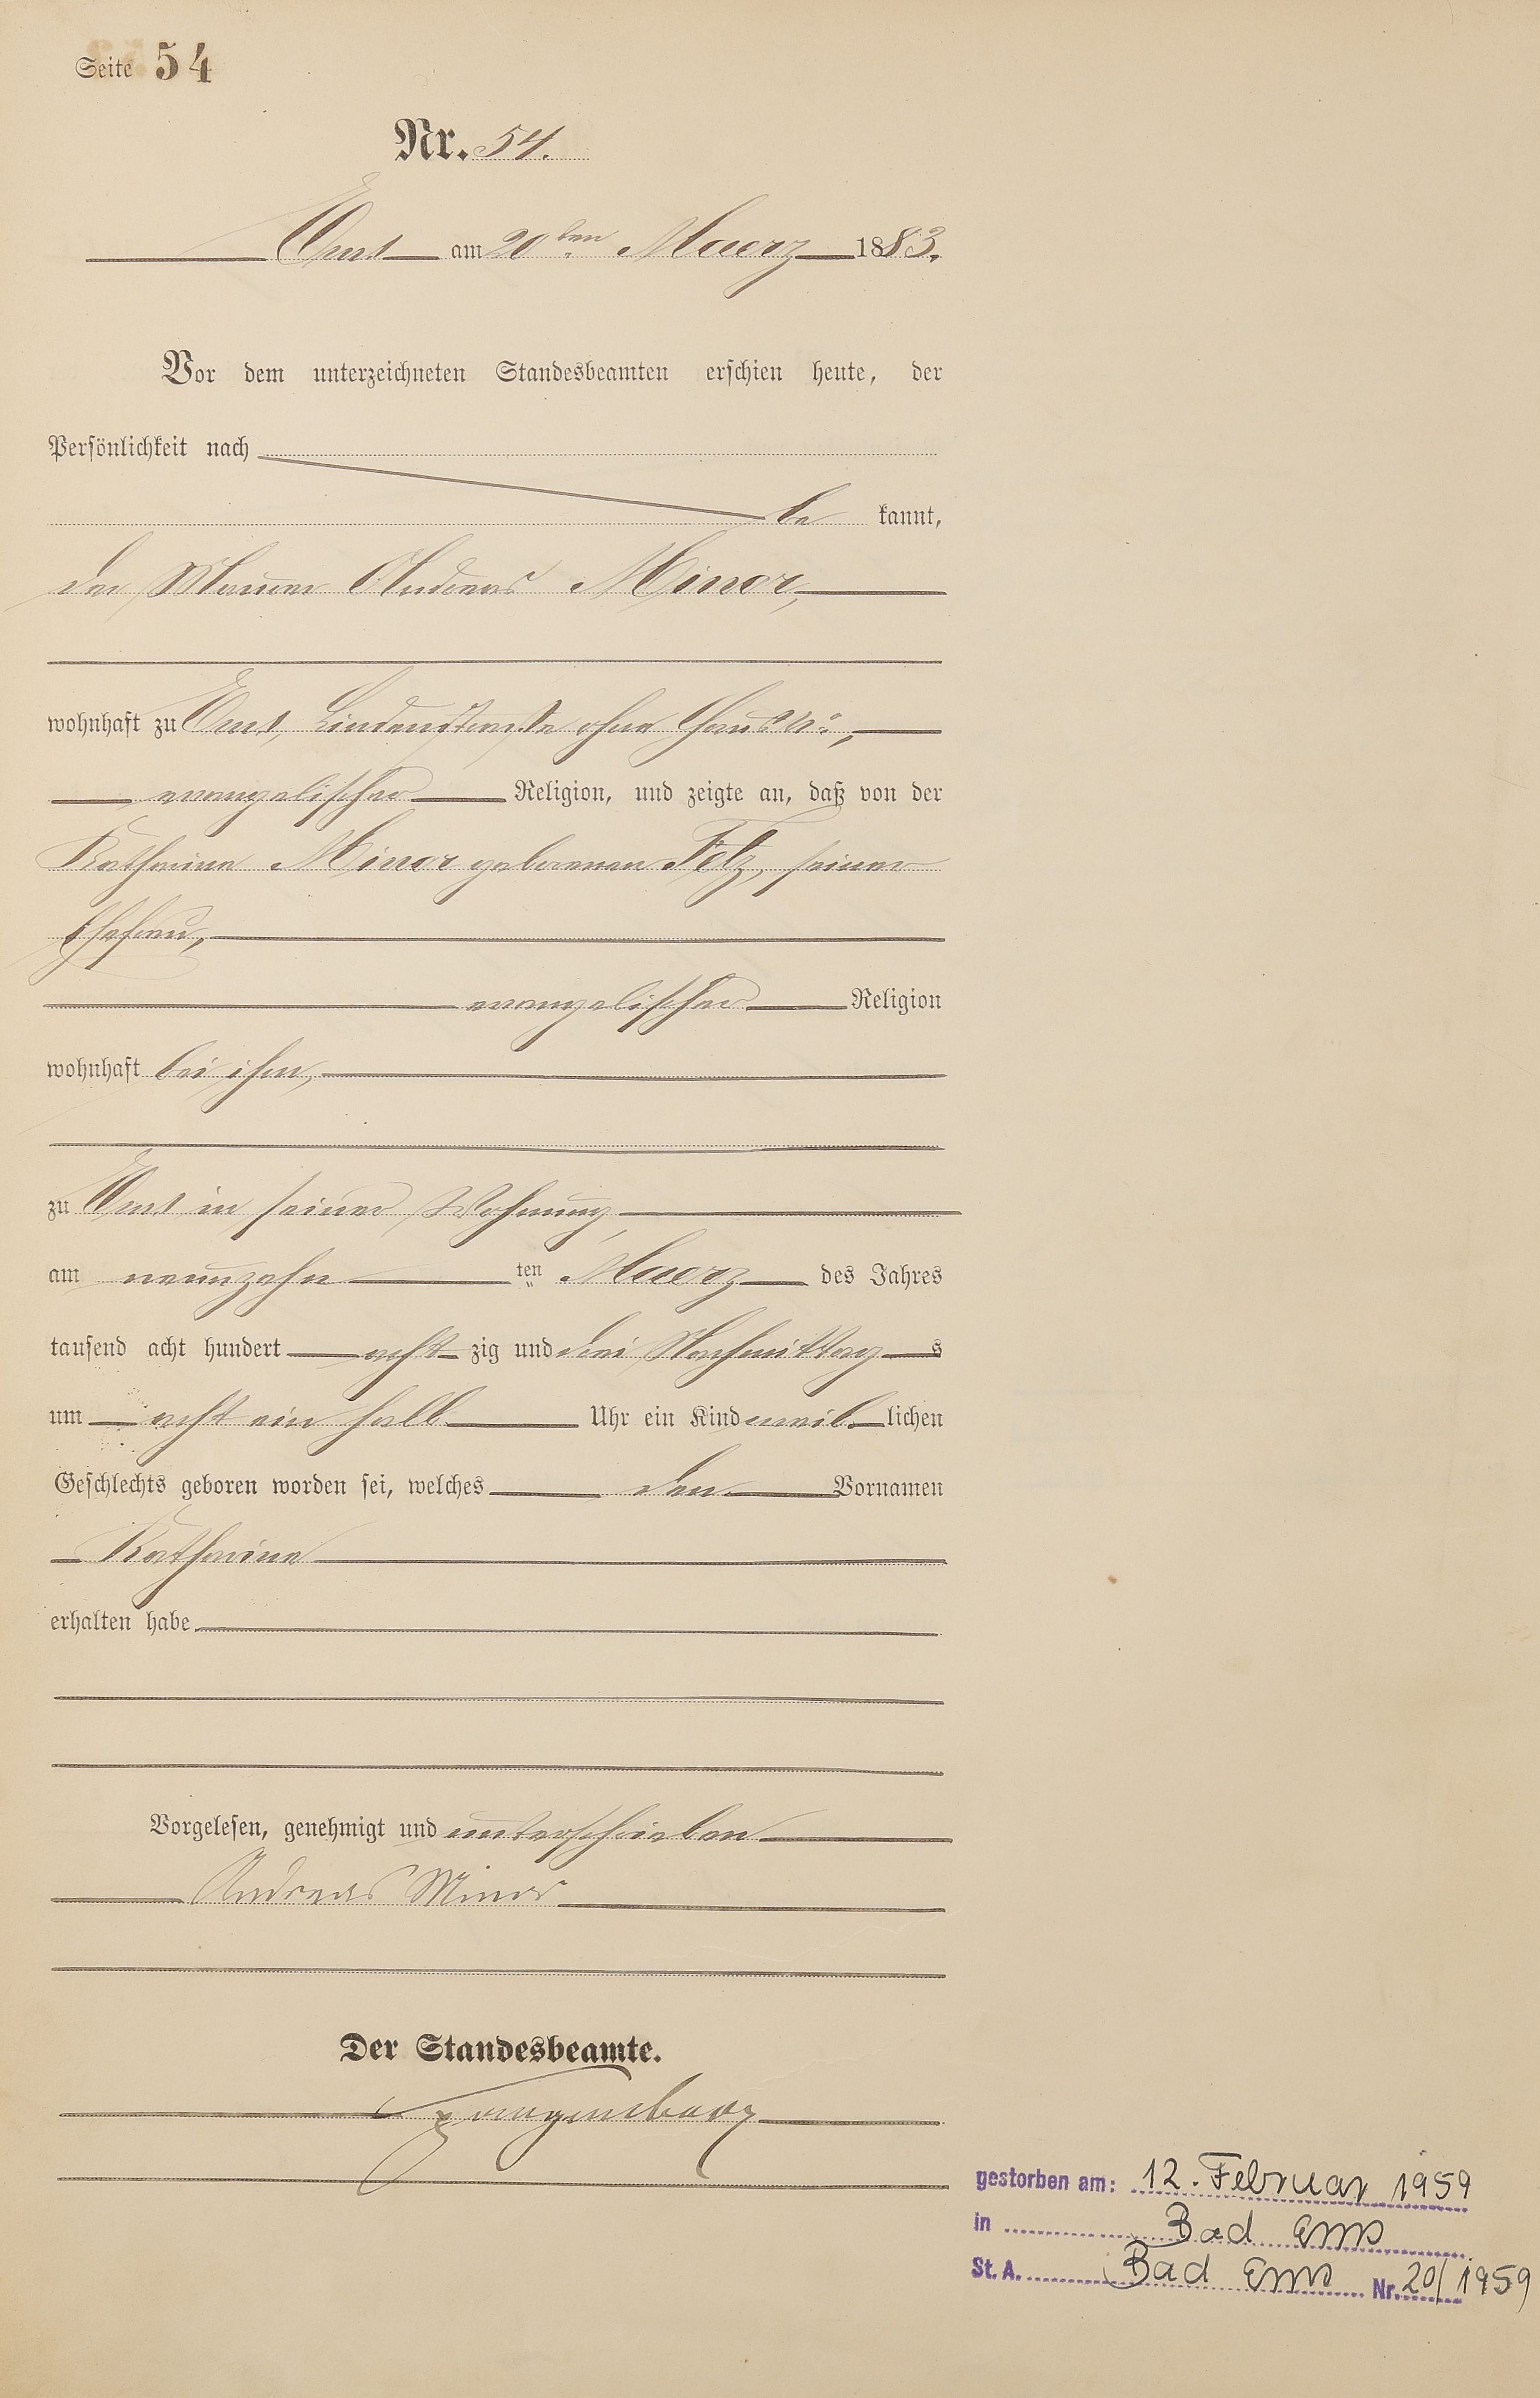 Seite 54
Nr. 54.
Ems am 20ten Maerz 1883.
Vor dem unterzeichneten Standesbeamten erschien heute, der
Persönlichkeit nach
be kannt,
der Maurer Andreas Minor,
wohnhaft zu Ems, Lindenstraße ohne Haus No,
evangelischer Religion, und zeigte an, daß von der
Katharina Minor geborenen Felz, seiner
Ehefrau,
evangelischer Religion
wohnhaft bei ihm,
zu Ems in seiner Wohnung
am neunzehn ten Maerz des Jahres
tausend acht hundert acht zig und drei Nachmittag s
um acht ein halb Uhr ein Kind weib lichen
Geschlechts geboren worden sei, welches den Vornamen
Katharina
erhalten habe
Vorgelesen, genehmigt und unterschrieben
Andreas Minor
Der Standesbeamte.
gestorben am: 12. Februar 1959
in Bad Ems
St. A. Bad Ems Nr. 20/1959